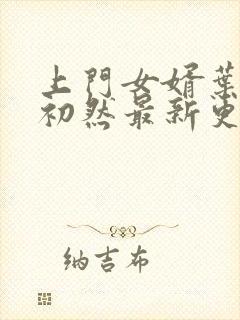 上門女婿葉
初然最新更
纳吉布